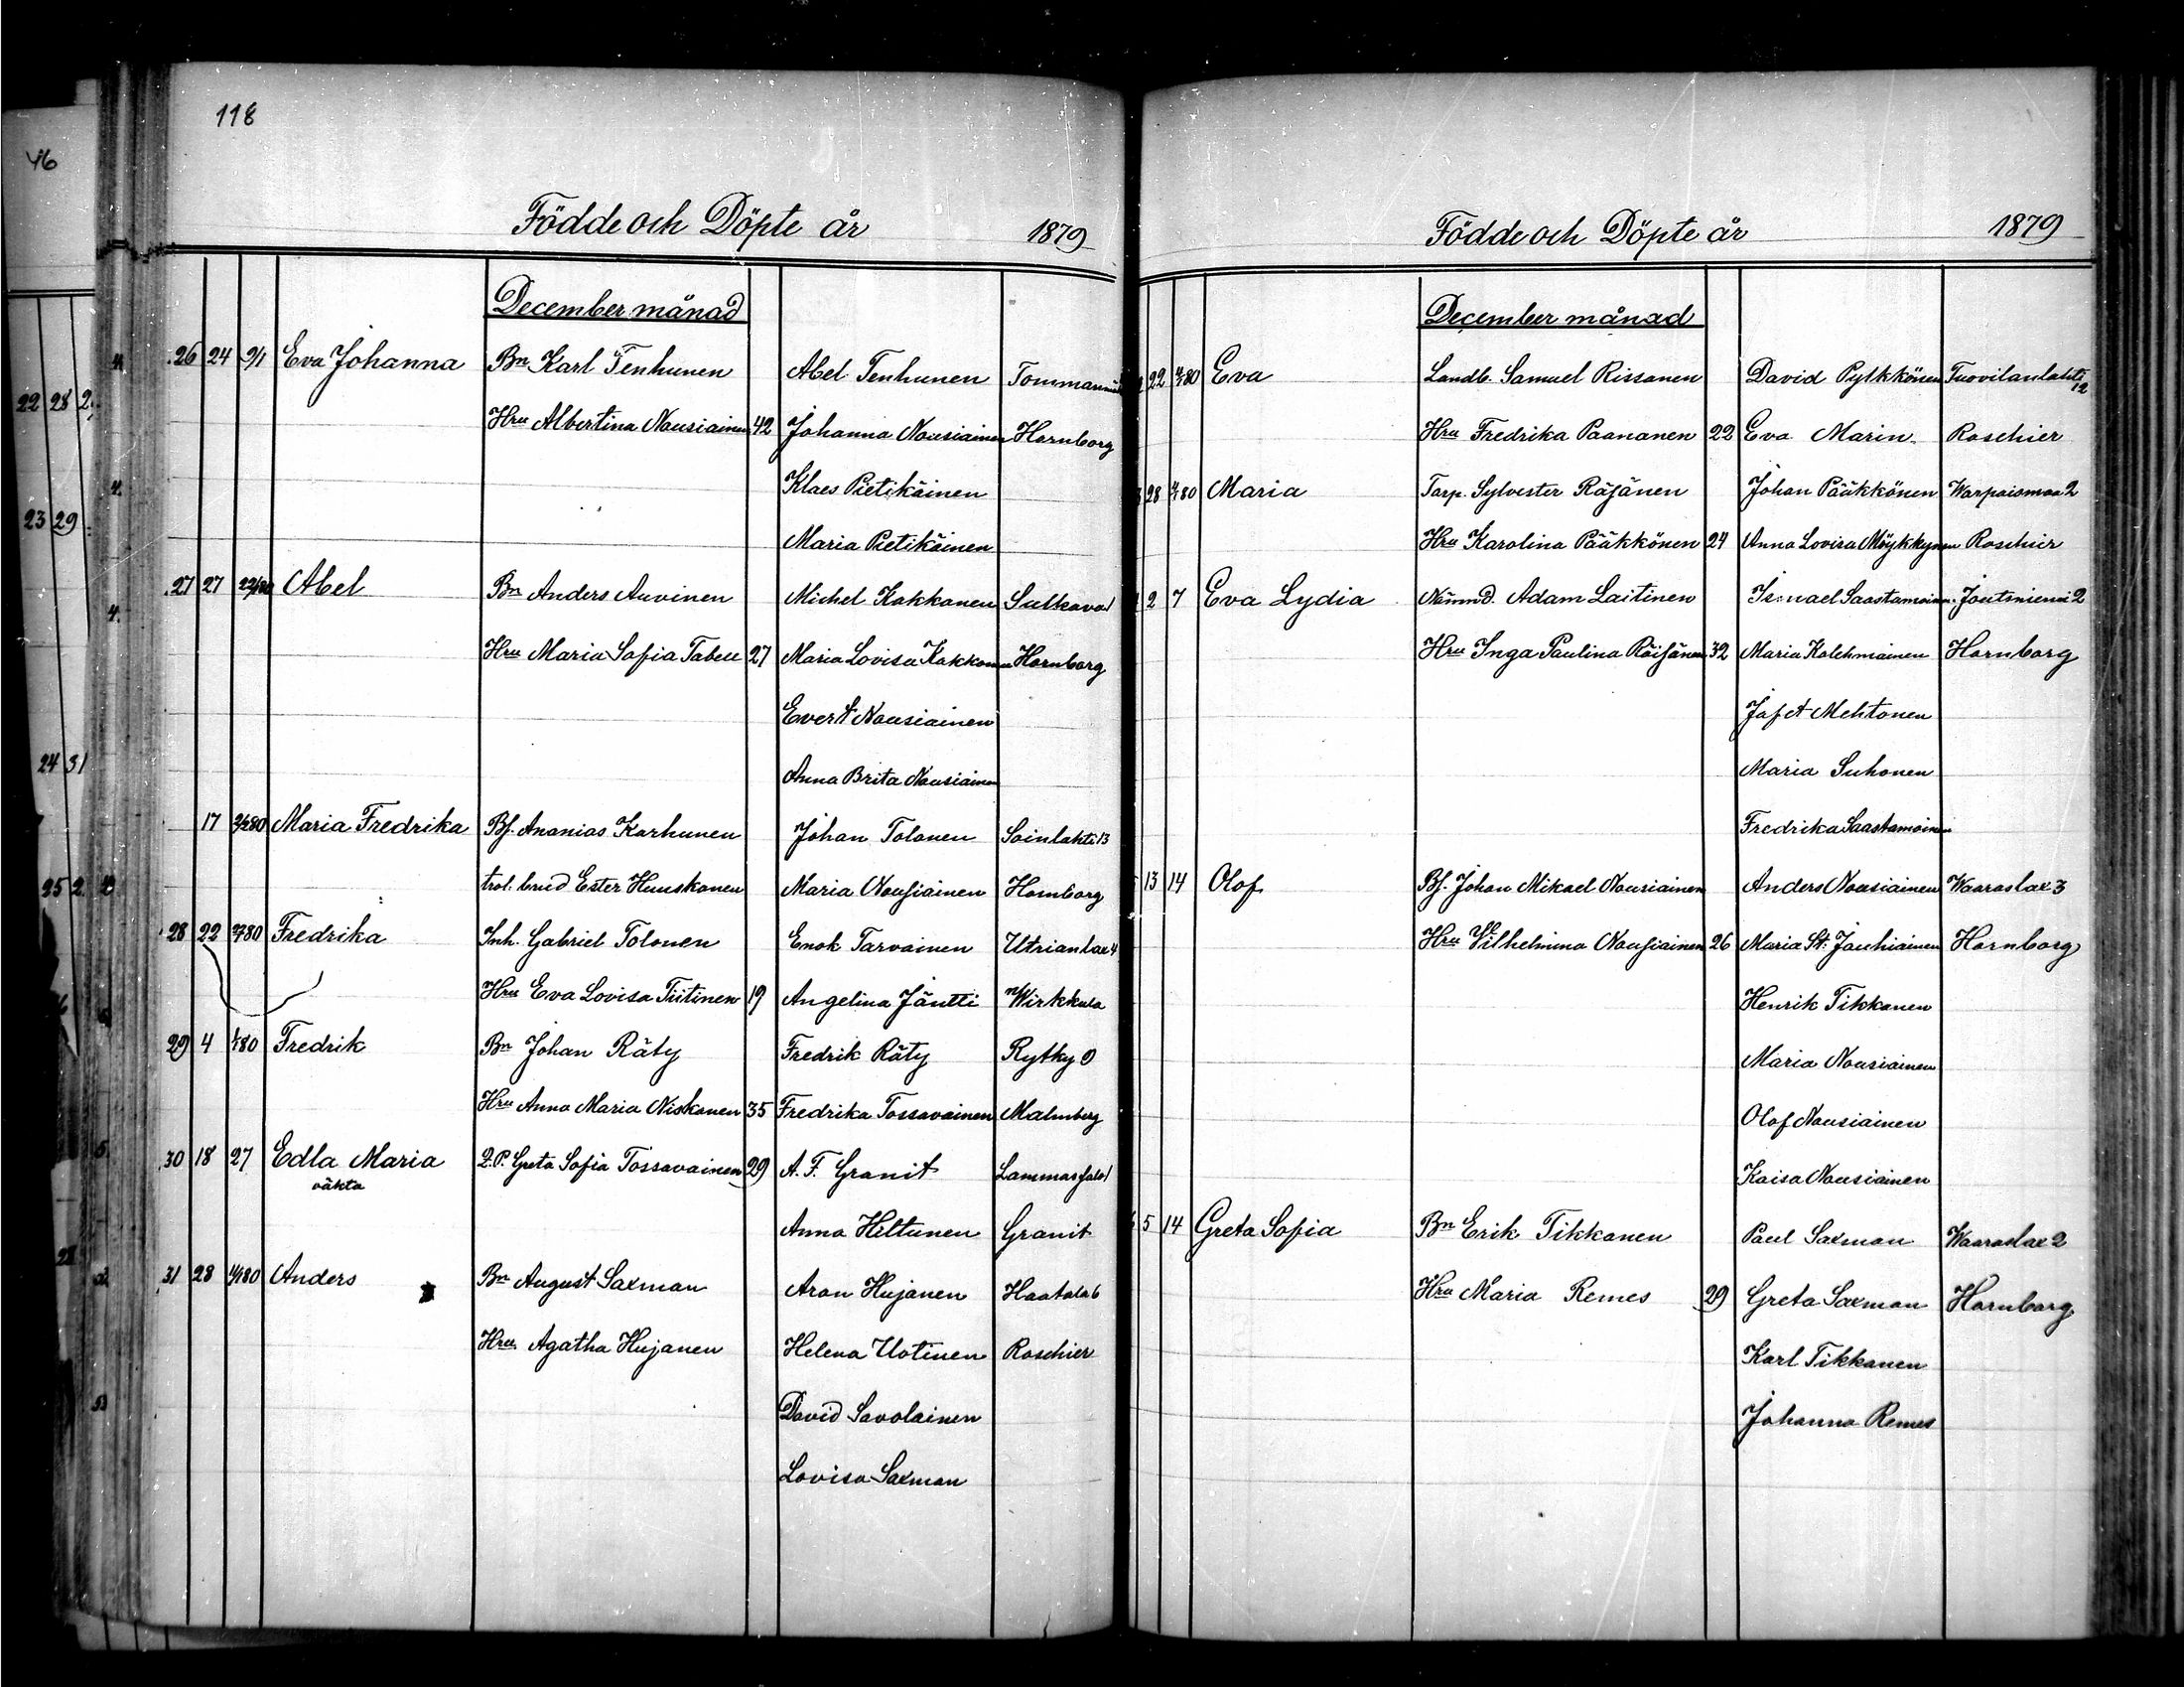 118
Födde och Döpte år 1879
December månad
26 24 9/1 Eva Johanna Bn Karl Tenhunen Abel Tenhunen
Hru Albertina Nousiainen 42 Johanna Nousiainen Hornborg
Klaes Pietikäinen
Maria Pietikäinen
27 27 Abel Bn Anders Auvinen Michel Kokkonen
Hru Maria Sofia Tabell 27 Maria Lovisa Kokkonen Hornborg
Evert Nousiainen
Anna Brita Nousiainen
17 Maria Fredrika Bf. Ananias Karhunen Johan Tolonen Soinlahti 13
trol. brud Ester Huuskonen Maria Nousiainen Hornborg
28 22 Fredrika Inh. Gabriel Tolonen Enok Tarvainen Utrianlax 4
Hru Eva Lovisa Tiitinen 19 Angelina Jäntti Wirkkula
29 4 Fredrik Bn Johan Räty Fredrik Räty Rytky
Hru Anna Maria Niskanen 35 Fredrika Tossavainen Malmberg
30 18 27 Edla Maria Q.P. Greta Sofia Tossavainen 29 A. F. Granit
oäkta
Anna Hiltunen Granit
31 28 Anders Bn August Saxman Aron Hujanen Haatala 6
Hru Agatha Hujanen Helena Uotinen Roschier
David Savolainen
Lovisa Saxman
46
22 28 2
23 29
24 31
25 2
Födde och Döpte år 1879
December månad
22 Eva Landb. Samuel Rissanen David Pylkkönen Tuovilanlahti 12
Hru Fredrika Paananen 22 Eva Marin Roschier
28 Maria Torp. Sylvester Räjänen Johan Pääkkönen Warpaismaa 2
Hru Karolina Pääkkönen 24 Anna Lovisa Möykkynen Roschier
2 7 Eva Lydia Nämnd. Adam Laitinen Ismael Saastamoinen Joutsniemi 2
Hru Inga Paulina Räisänen 32 Maria Kolehmainen Hornborg
Jafet Mehtonen
Maria Suhonen
Fredrika Saastamoinen
13 14 Olof Bf. Johan Mikael Nousiainen Anders Nousiainen Waaraslax 3
Hru Vilhelmina Nousiainen 26 Maria St. Jauhiainen Hornborg
Henrik Tikkanen
Maria Nousiainen
Olof Nousiainen
Kaisa Nousiainen
5 14 Greta Sofia Bn Erik Tikkanen Paul Saxman Waaraslax 2
Hru Maria Remes 29 Greta Saxman Hornborg
Karl Tikkanen
Johanna Remes